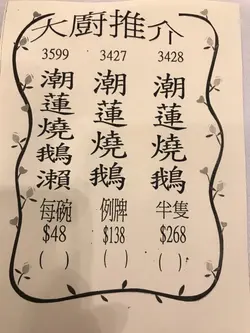 大廚推介
3599
潮蓮燒鵝瀨
每碗
$48
( )
3427
潮蓮燒鵝
例牌
$138
( )
3428
潮蓮燒鵝
半隻
$268
( )